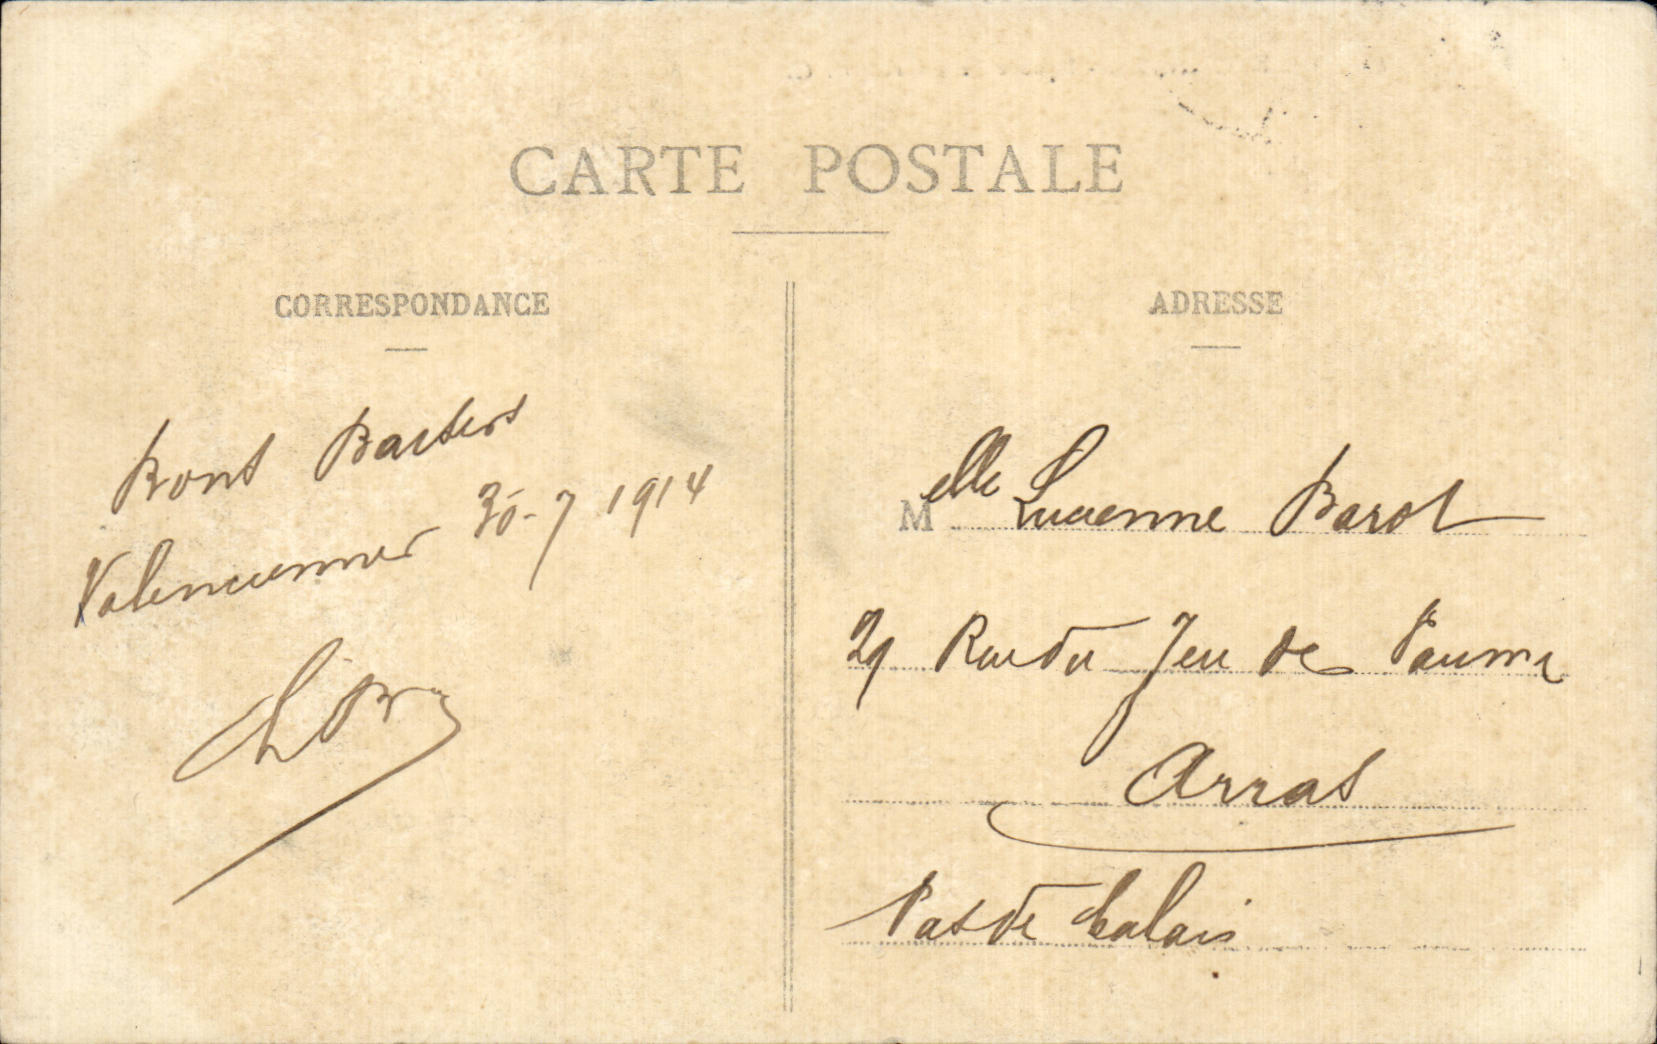 CARTE POSTALE
CORRESPONDANCE
Bons Baisers
Valenciennes 30-7 1914
ADRESSE
Melle Lucienne Barol
29 Rue du Jeu de Paume
Arras
Pas de Calais